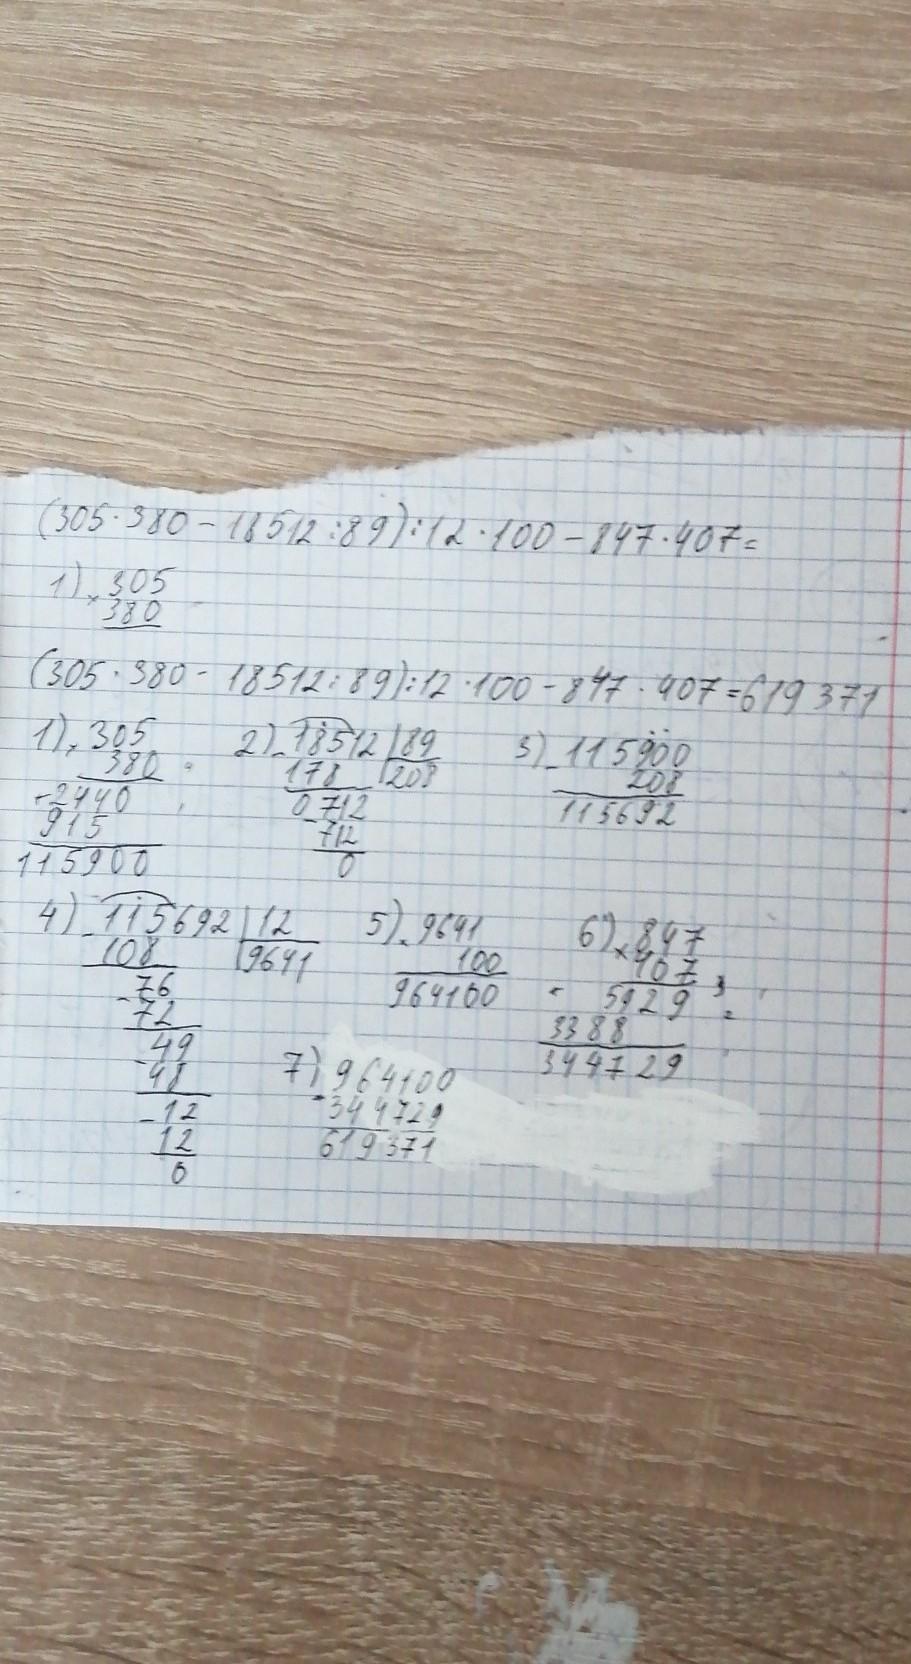 (305·380-18512:89):12·100-847·407=
1) × 305
380
(305·380-18512:89):12·100-847·407=619371
1) × 305 2) - 18512 | 89 3) - 115900
380 178 208 208
+2440 0712 115692
915 - 712
115900 712
0
4) - 115692 | 12 5) × 9641 6) × 847
108 9641 100 407
- 76 964100 + 5929
72 3388
- 49 344729
48 7) - 964100
- 12 344729
12 619371
0